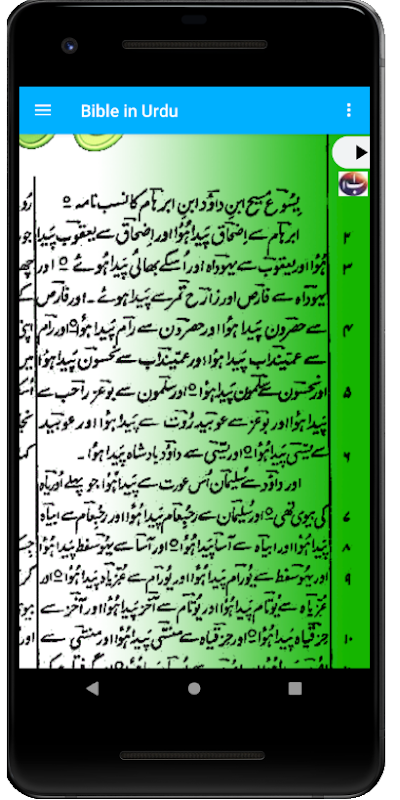 Bible in Urdu
یسُوع مسیح ابنِ داؤد ابنِ ابرہام کا نسب نامہ ۝
۲ ابرہام سے اِضحاق پَیدا ہُؤا اور اِضحاق سے یعقُوب پَیدا
۳ ہُؤا اور یعقُوب سے یہُوداہ اور اُسکے بھائی پَیدا ہُوئے ۝ اور
یہُوداہ سے فارص اور زارح تمر سے پَیدا ہوئے ۔ اور فارص
۴ سے حصرون پَیدا ہؤا اور حصرون سے رام پَیدا ہؤا ۝ اور رام
سے عمّینداب پَیدا ہؤا اور عمّینداب سے نحسون پَیدا ہؤا
۵ اور نحسون سے سلمون پَیدا ہؤا ۝ اور سلمون سے بوعز راحب سے
پَیدا ہُؤا اور بوعز سے عوبید رُوت سے پَیدا ہؤا اور عوبید
۶ سے یسّی پَیدا ہؤا ۝ اور یسّی سے داؤد بادشاہ پَیدا ہؤا ۔
اور داؤد سے سُلیمان اُس عورت سے پَیدا ہُؤا جو پہلے اُوریاہ
۷ کی بیوی تھی ۝ اور سُلیمان سے رحُبعام پَیدا ہؤا اور رحُبعام سے ابیاہ
۸ پَیدا ہُؤا اور ابیاہ سے آسا پَیدا ہُؤا ۝ اور آسا سے یہوسفط پَیدا ہُؤا
۹ اور یہوسفط سے یُورام پَیدا ہُؤا اور یُورام سے عُزیاہ پَیدا ہُؤا ۝ اور
عُزیاہ سے یُوتام پَیدا ہُؤا اور یُوتام سے آخز پَیدا ہُؤا اور آخز سے
۱۰ حزقیاہ پَیدا ہُؤا ۝ اور حزقیاہ سے منسّی پَیدا ہُؤا اور منسّی سے